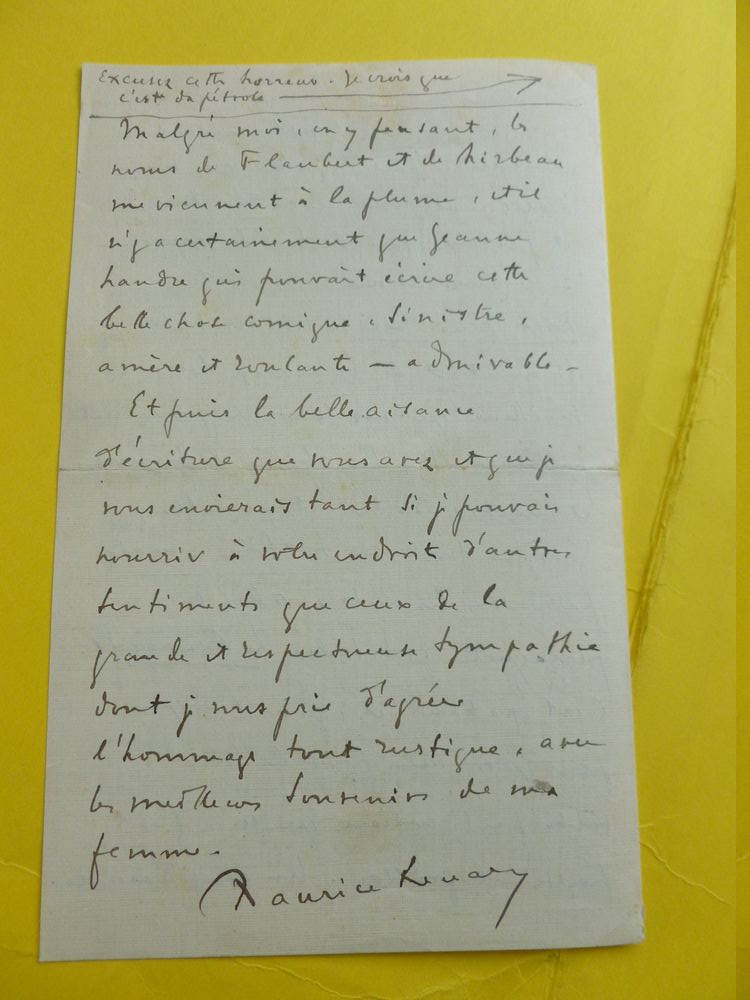 Excusez cette horreur. Je crois que
c'est du pétrole
Malgré moi, en y pensant, les
noms de Flaubert et de Mirbeau
me viennent à la plume, et il
n'y a certainement que Jeanne
Landre qui pouvait écrire cette
belle chose comique, sinistre,
amère et roulante — admirable —
Et puis la belle aisance
d'écriture que vous avez et que je
vous envierais tant si je pouvais
nourrir à votre endroit d'autres
sentiments que ceux de la
grande et respectueuse sympathie
dont je vous prie d'agréer
l'hommage tout rustique, avec
les meilleurs souvenirs de ma
femme.
Maurice Renard